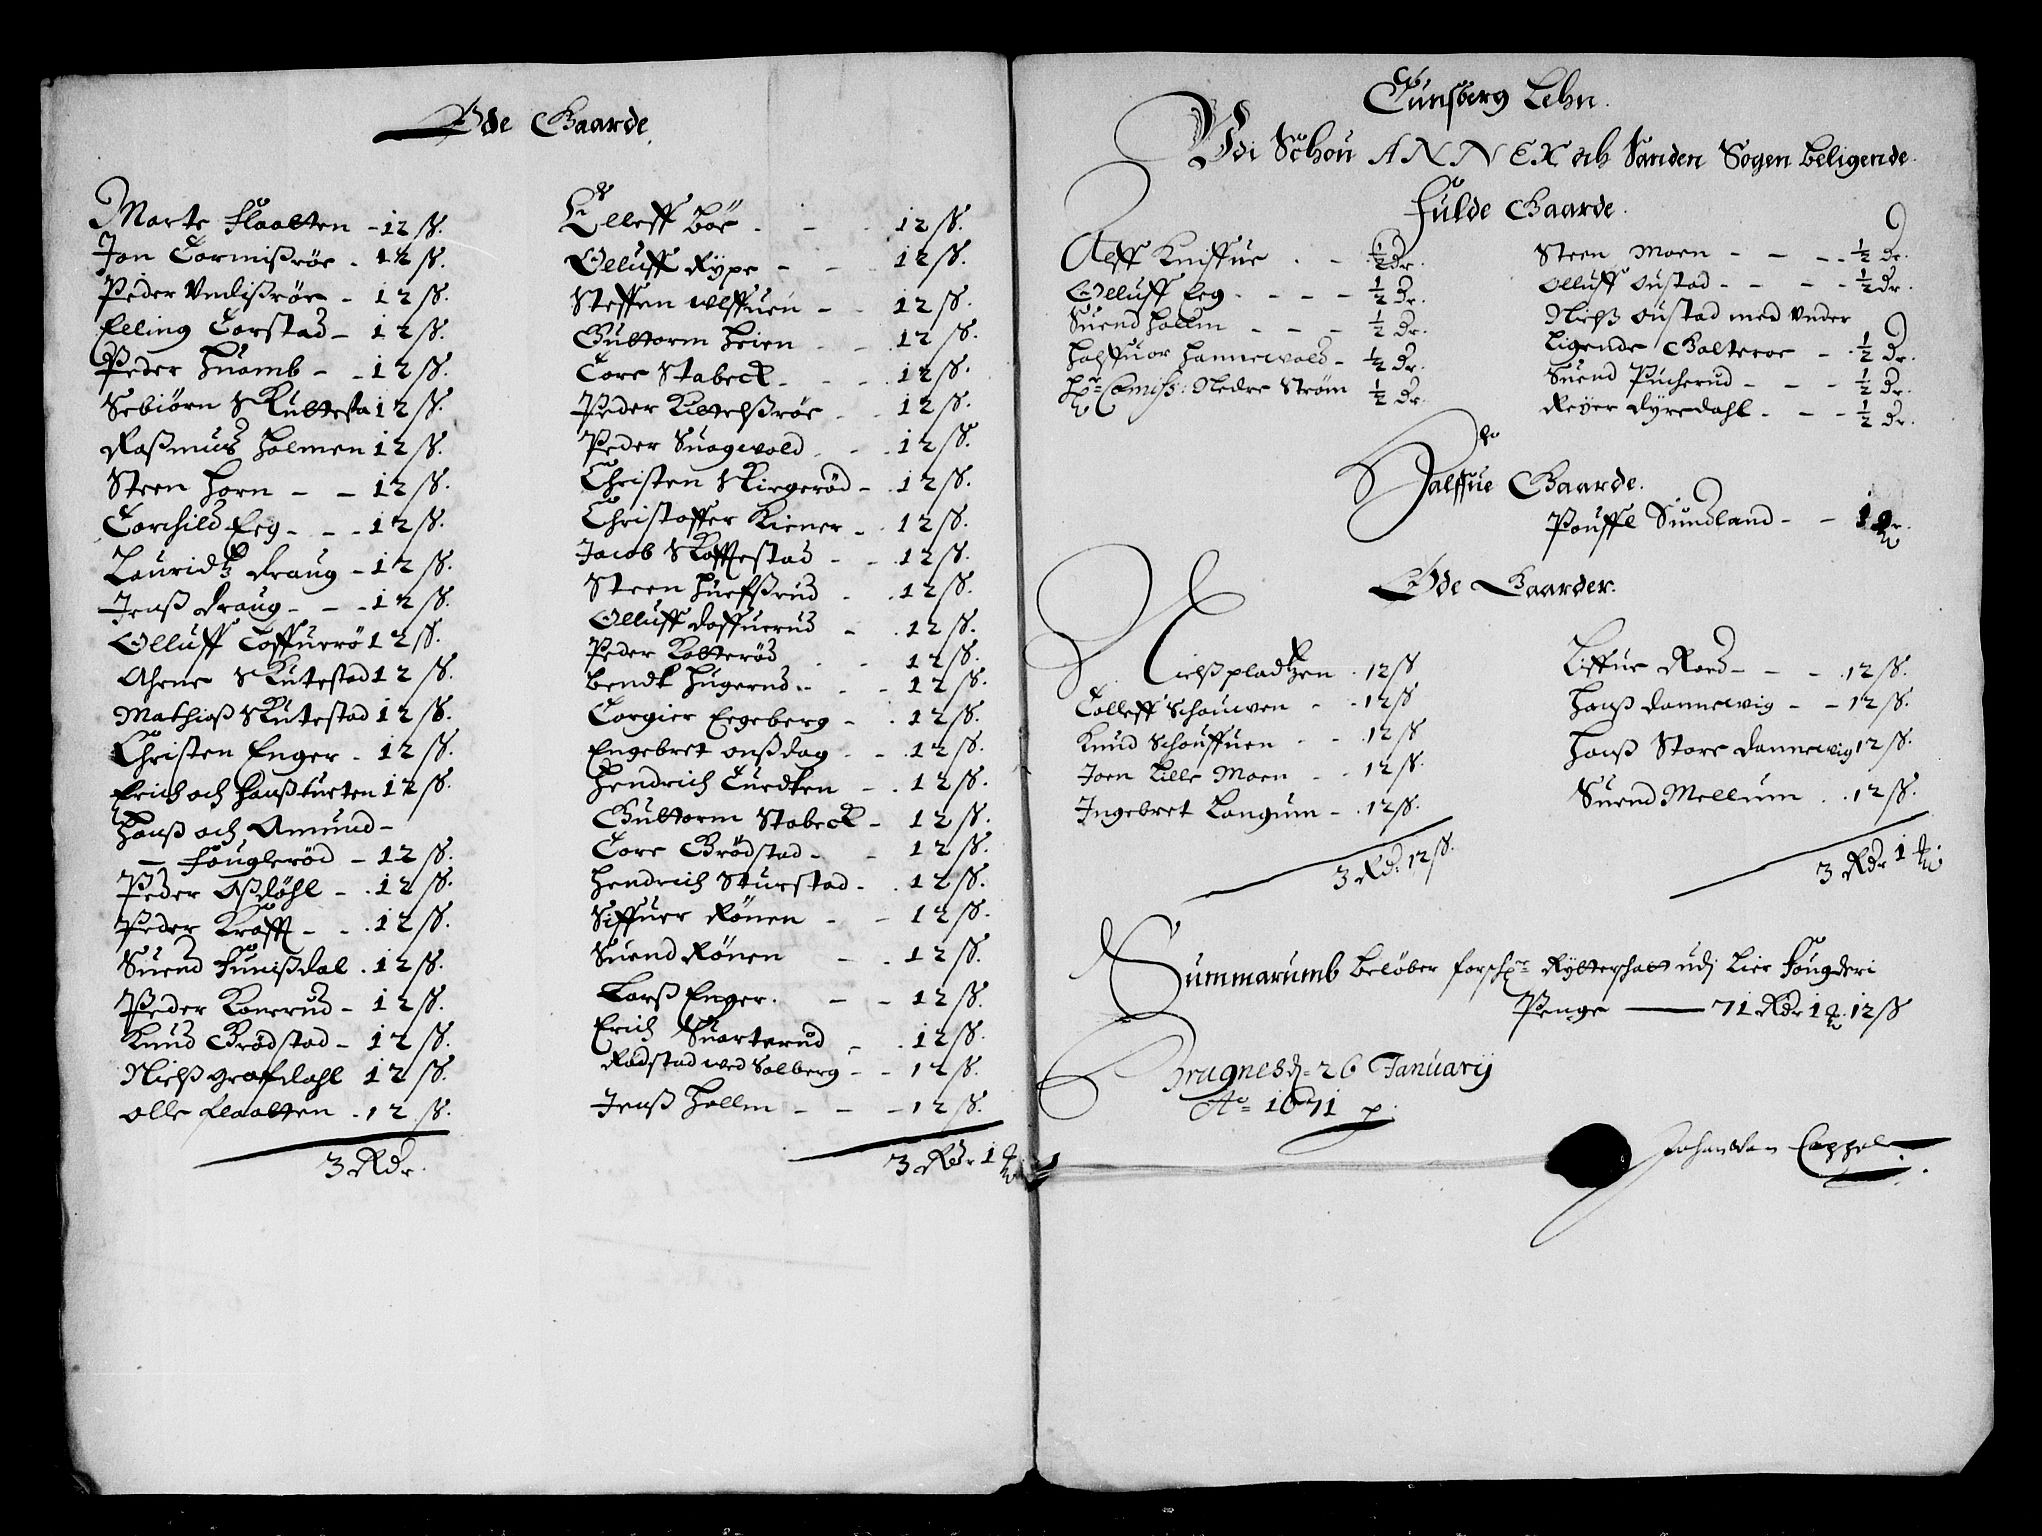 Øde Gaarde
Marte Flaatten - 12 ß.
Jon Tormißröe - 12 ß.
Peder Vndißröe - 12 ß.
Elling Torstad - 12 ß.
Peder Huamb - - 12 ß.
Sebiörn Skuttesta 12 ß.
Raßmus Holmen 12 ß.
Steen Horn - - 12 ß.
Torchild Eeg - - 12 ß.
Lauridtz Draug - 12 ß.
Jenß Draug - - 12 ß.
Olluff Toffuerö 12 ß.
Ahrne Skutestad 12 ß.
Mathiaß Skutestad 12 ß.
Christen Enger - 12 ß.
Erich och Hanß turten 12 ß.
Hanß och Amund -
- Fougleröd - 12 ß.
Peder Aßdöhl - 12 ß.
Peder Krafft - - 12 ß.
Suend Funißdal . 12 ß.
Peder Konerud - 12 ß.
Knud Brödstad - 12 ß.
Nielß grafdahl 12 ß.
Olle Flaatten - 12 ß.
3 Rdr.
Elleff Böe - - 12 ß.
Olluff Rype - - 12 ß.
Steffen Vlffuen - 12 ß.
Guttorm Heien - 12 ß.
Tore Stabeck - - 12 ß.
Peder Kittelßröe - 12 ß.
Peder Suagwold - 12 ß.
Christen Skirgeröd - 12 ß.
Christoffer Kiener - 12 ß.
Jacob Skaffestad - - 12 ß.
Steen Huefßrud - 12 ß.
Olluff Daffuerud - 12 ß.
Peder Kolteröd 12 ß.
Bendt Hugerud - - 12 ß.
Torgier Eegeberg - 12 ß.
Engebret onßdag - - 12 ß.
Hendrich Tuedten - 12 ß.
Guttorm Stabeck - 12 ß.
Tore Brödstad - - 12 ß.
Hendrich Sturstad - 12 ß.
Siffuer Rönen - - 12 ß.
Suend Rönen - 12 ß.
Larß Enger - - 12 ß.
Erich Suarterud - 12 ß.
Rödstad wed Solberg - - 12 ß.
Jenß Hallm - - - 12 ß.
3 Rdr 1
Tunsberg Lehn.
Vdi Schou ANNEX och Sanden Sogen beligende.
Fulde Gaarde.
Alff Kniffue - - ½ dr.
Olluff Eeg - - - ½ dr.
Suend Hallm - - - ½ dr.
Halffuor Hannewold - ½ dr.
Hr: Comiss: Nedre Ström ½ dr.
Steen Moen - - - ½ dr.
Olluff Oustad - - - ½ dr.
Nielß Oustad med vnder
ligende Galteroe - ½ dr.
Suend Pucherud - - - ½ dr.
Reyer Dyredahl - - - ½ dr.
Halffue Gaarde.
Pouffl Sundland - - 1
Øde Gaarder.
Nielß pladtzen . 12 ß
Tolleff Schouwen - - 12 ß
Knud Schouffuen - - 12 ß
Joen Lille Moen - - 12 ß.
Ingebret Langum - . 12 ß.
3 Rd: 12 ß.
Liffue Roed - - - 12 ß.
Hanß Dannewig - - 12 ß.
Hanß Store Dannewig 12 ß.
Suend Mellum . . 12 ß.
3 Rdr 1
Summarumb belöber forschr. Rytterschatt udj Lier Fougderi
Penge —— 71 Rdr 1 . 12 ß
Bragnes d. 26 Januarij
Ao 1671
Johan Van Cappel